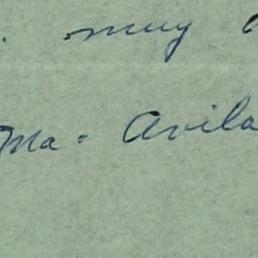 . muy
Ma. Avila